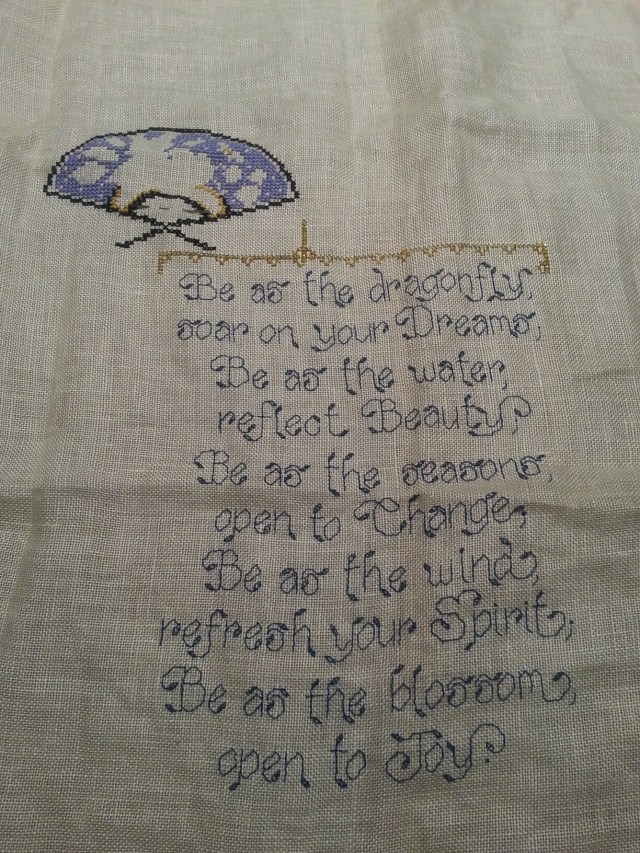 Be as the dragonfly,
soar on your Dreams,
Be as the water,
reflect Beauty,
Be as the seasons,
open to Change,
Be as the wind,
refresh your Spirit,
Be as the blossom,
open to Joy.